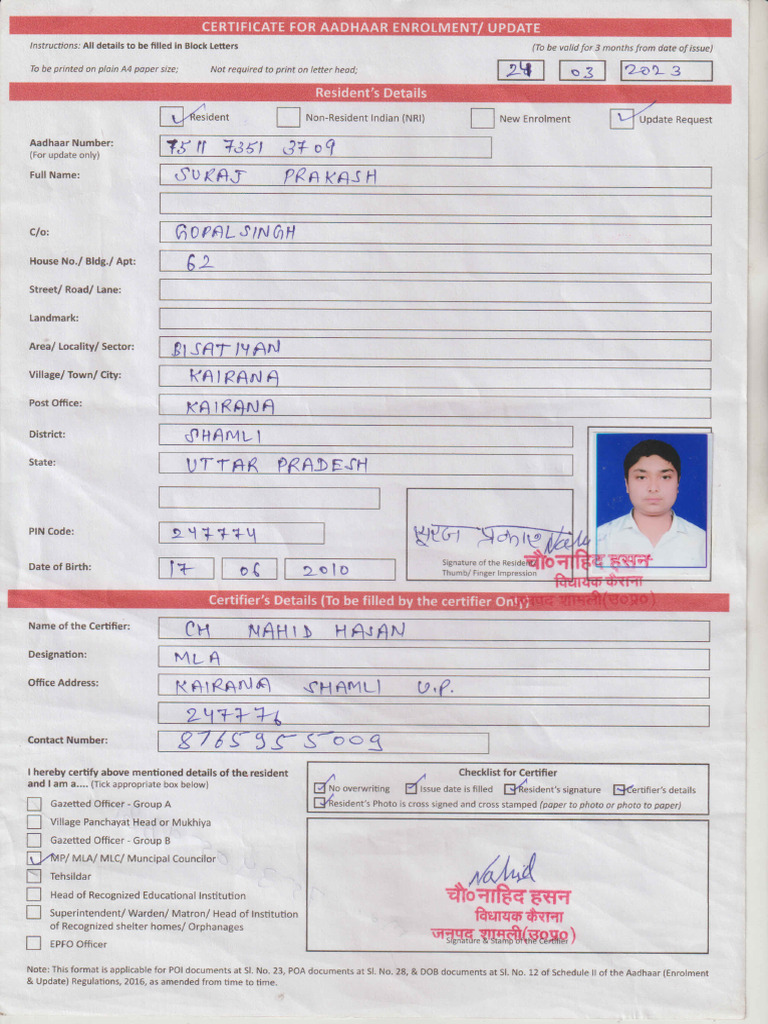 CERTIFICATE FOR AADHAAR ENROLMENT/ UPDATE
Instructions: All details to be filled in Block Letters (To be valid for 3 months from date of issue)
To be printed on plain A4 paper size; Not required to print on letter head; 24 03 2023
Resident's Details
Resident Non-Resident Indian (NRI) New Enrolment Update Request
Aadhaar Number: 7511 7351 3709
(For update only)
Full Name: SURAJ PRAKASH
C/o: GOPALSINGH
House No./ Bldg./ Apt: 62
Street/ Road/ Lane:
Landmark:
Area/ Locality/ Sector: BISATIYAN
Village/ Town/ City: KAIRANA
Post Office: KAIRANA
District: SHAMLI
State: UTTAR PRADESH
PIN Code: 247774
सूरज प्रकाश Nahid
Signature of the Resident
Thumb/ Finger Impression
चौ० नाहिद हसन
विधायक कैराना
जनपद शामली(उ०प्र०)
Date of Birth: 17 06 2010
Certifier's Details (To be filled by the certifier Only)
Name of the Certifier: CH NAHID HASAN
Designation: MLA
Office Address: KAIRANA SHAMLI U.P.
247776
Contact Number: 8765955009
I hereby certify above mentioned details of the resident
and I am a.... (Tick appropriate box below)
Gazetted Officer - Group A
Village Panchayat Head or Mukhiya
Gazetted Officer - Group B
MP/ MLA/ MLC/ Muncipal Councilor
Tehsildar
Head of Recognized Educational Institution
Superintendent/ Warden/ Matron/ Head of Institution
of Recognized shelter homes/ Orphanages
EPFO Officer
Checklist for Certifier
No overwriting Issue date is filled Resident's signature Certifier's details
Resident's Photo is cross signed and cross stamped (paper to photo or photo to paper)
Nahid
चौ० नाहिद हसन
विधायक कैराना
जनपद शामली(उ०प्र०)
Signature & Stamp of the Certifier
Note: This format is applicable for POI documents at Sl. No. 23, POA documents at Sl. No. 28, & DOB documents at Sl. No. 12 of Schedule II of the Aadhaar (Enrolment
& Update) Regulations, 2016, as amended from time to time.